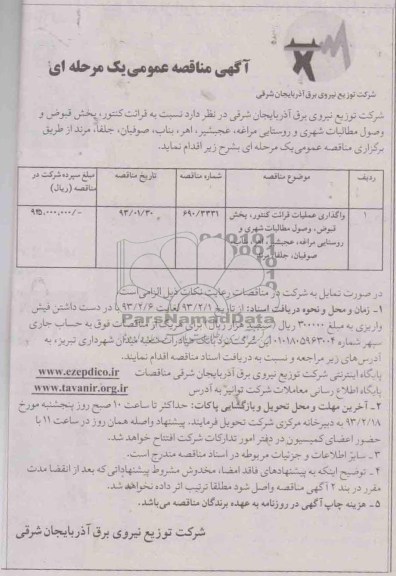 آگهی مناقصه عمومی یک مرحله ای
شرکت توزیع نیروی برق آذربایجان شرقی
شرکت توزیع نیروی برق آذربایجان شرقی در نظر دارد نسبت به قرائت کنتور، پخش قبوض و
وصول مطالبات شهری و روستایی مراغه، عجبشیر، اهر، بناب، صوفیان، جلفا، مرند از طریق
برگزاری مناقصه عمومی یک مرحله ای بشرح زیر اقدام نماید.
ردیف موضوع مناقصه شماره مناقصه تاریخ مناقصه مبلغ سپرده شرکت در
مناقصه (ریال)
۱ واگذاری عملیات قرائت کنتور، پخش ۶۹۰/۳۳۳۱ ۹۳/۰۱/۳۰ ۹۲۵،۰۰۰،۰۰۰/-
قبوض، وصول مطالبات شهری و
روستایی مراغه، عجبشیر،
صوفیان، جلفا، مرند
ParsNamadData
در صورت تمایل به شرکت در مناقصات رعایت نکات ذیل الزامی است
۱- زمان و محل و نحوه دریافت اسناد: از تاریخ ۹۳/۲/۱ لغایت ۹۳/۲/۶ با در دست داشتن فیش
واریزی به مبلغ ۳۰۰۰۰۰ ریال (سیصد هزار ریال) برای هریک از مناقصات فوق به حساب جاری
سپهر شماره ۰۱۰۱۸۰۵۹۶۳۰۰۴ این شرکت نزد بانک صادرات شعبه میدان شهرداری تبریز، به
آدرس‌های زیر مراجعه و نسبت به دریافت اسناد مناقصه اقدام نمایند.
پایگاه اینترنتی شرکت توزیع نیروی برق آذربایجان شرقی مناقصات www.ezepdico.ir
پایگاه اطلاع رسانی معاملات شرکت توانیر به آدرس www.tavanir.org.ir
۲- آخرین مهلت و محل تحویل و بازگشایی پاکات: حداکثر تا ساعت ۱۰ صبح روز پنجشنبه مورخ
۹۳/۲/۱۸ به دبیرخانه مرکزی شرکت تحویل فرمایند. پیشنهاد واصله همان روز در ساعت ۱۱ با
حضور اعضای کمیسیون در دفتر امور تدارکات شرکت افتتاح خواهد شد.
۳- سایر اطلاعات و جزئیات مربوطه در اسناد مناقصه مندرج است.
۴- توضیح اینکه به پیشنهادهای فاقد امضاء، مخدوش مشروط پیشنهاداتی که بعد از انقضا مدت
مقرر در بند ۲ آگهی مناقصه واصل شود مطلقا ترتیب اثر داده نخواهد شد.
۵- هزینه چاپ آگهی در روزنامه به عهده برندگان مناقصه می‌باشد.
شرکت توزیع نیروی برق آذربایجان شرقی